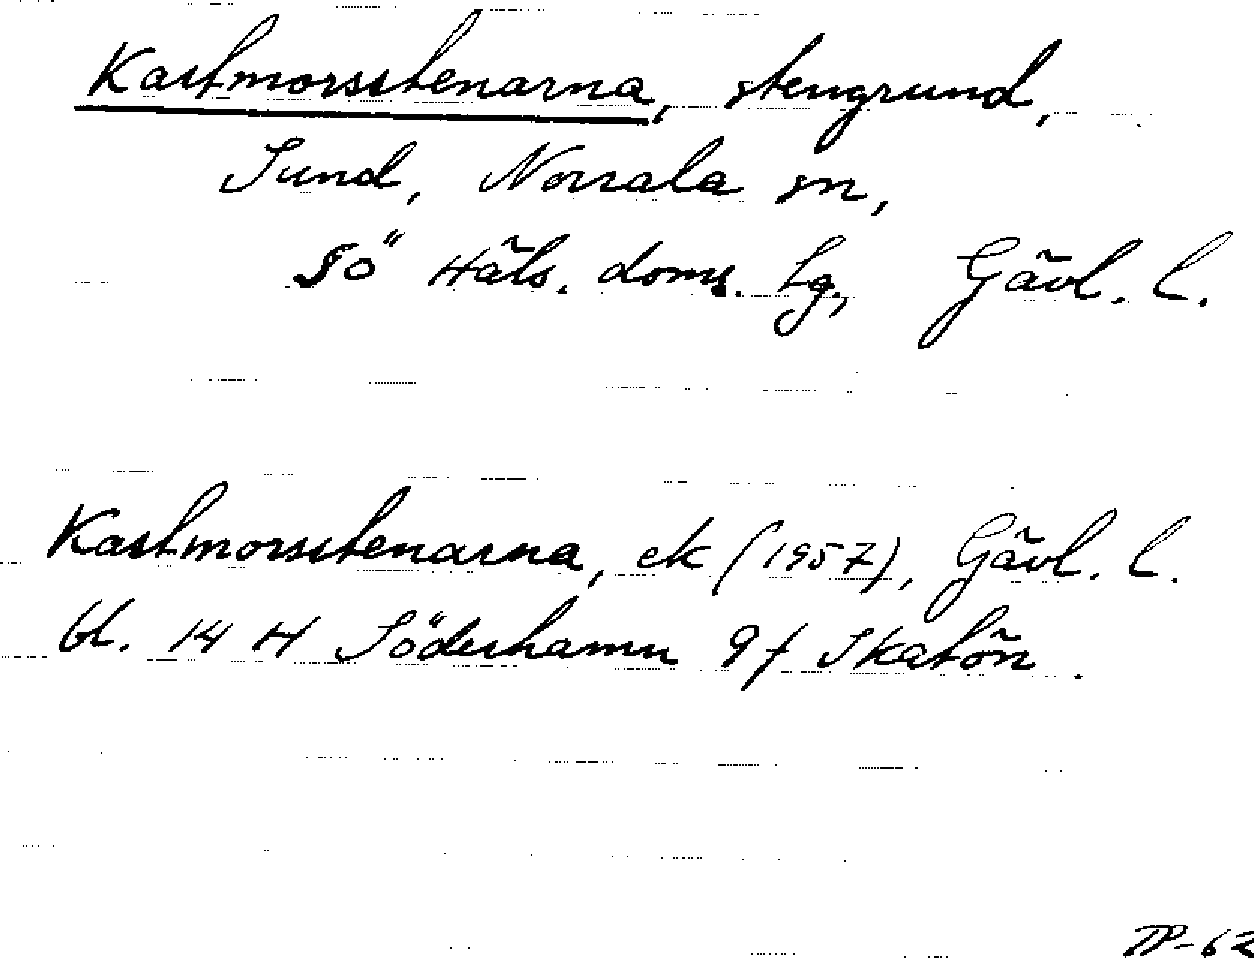 Kastmorsstenarna, stengrund,
Sund, Norrala sn,
Sö Häls. doms. lg, Gävl. l.
Kastmorsstenarna, ek (1957), Gävl. l.
bl. 14 H Söderhamn 9 f Skatön.
-62